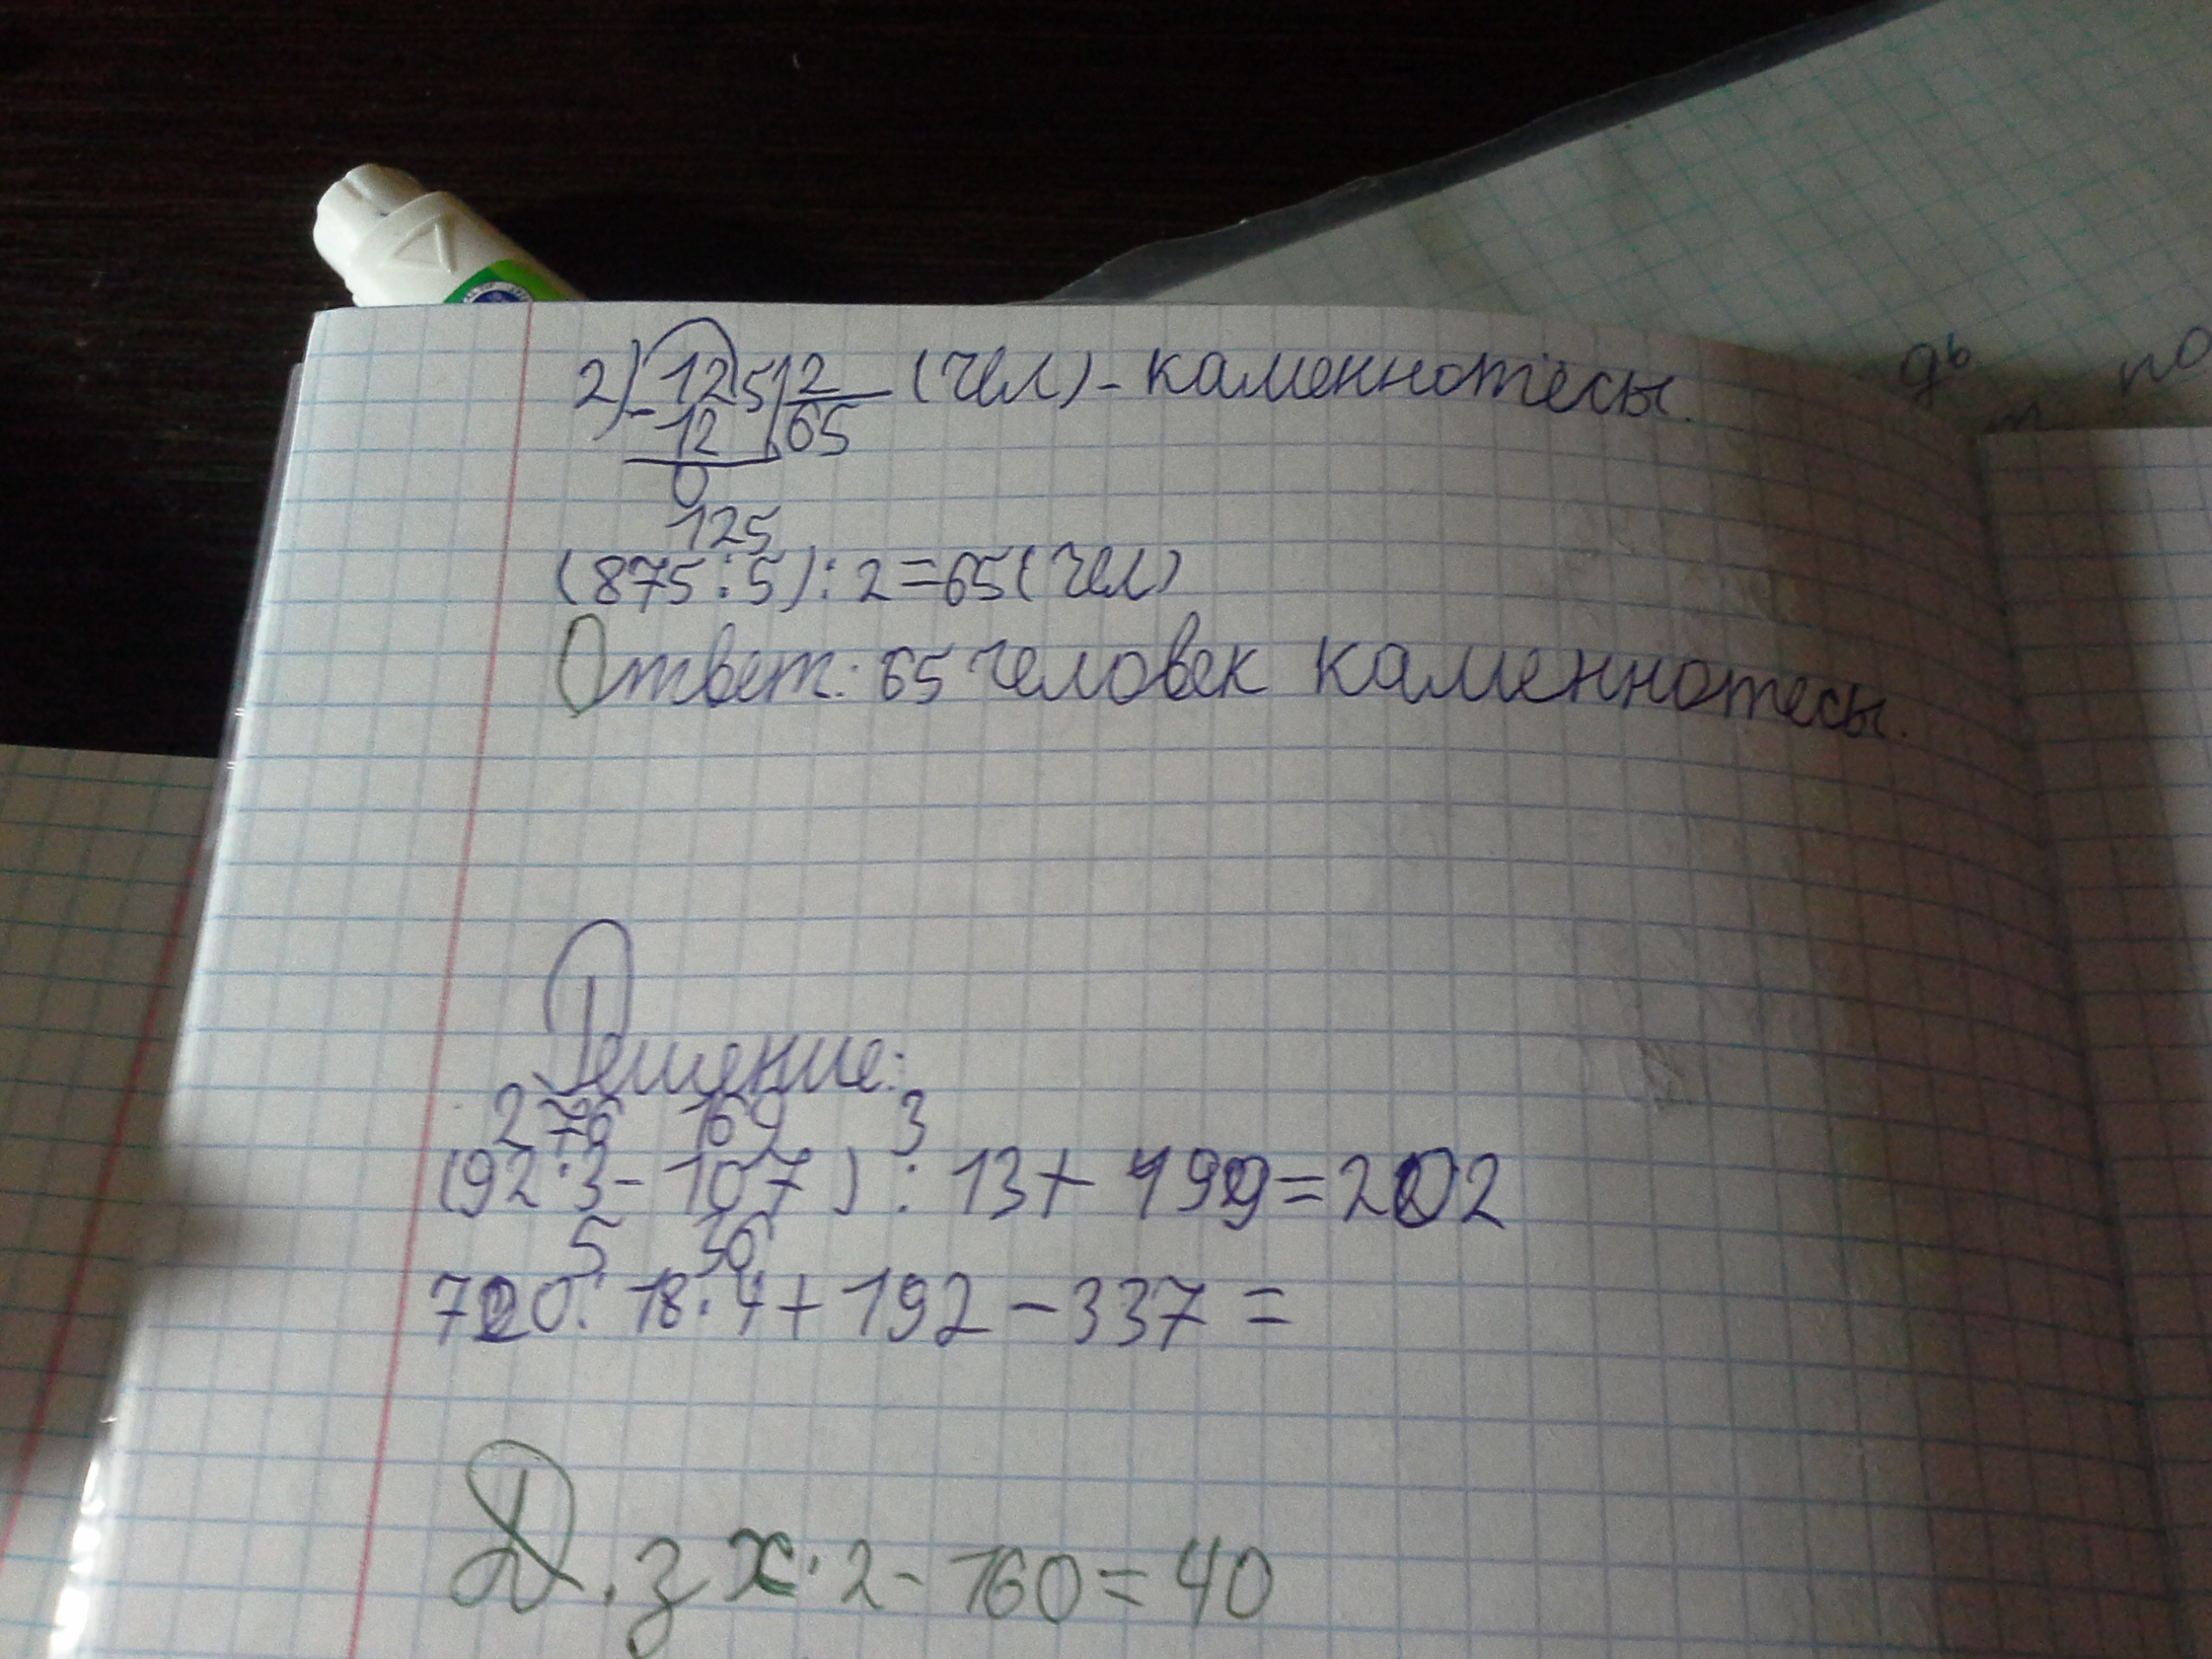 2) 125 | 2 (чел) - каменнотесы.
- 12 65
0
125
(875:5):2=65(чел)
Ответ: 65 человек каменнотесы.
Решение:
276 169 3
(92·3-107):13+199=202
5 36
720:18·4+192-337=
Д.з х·2-160=40